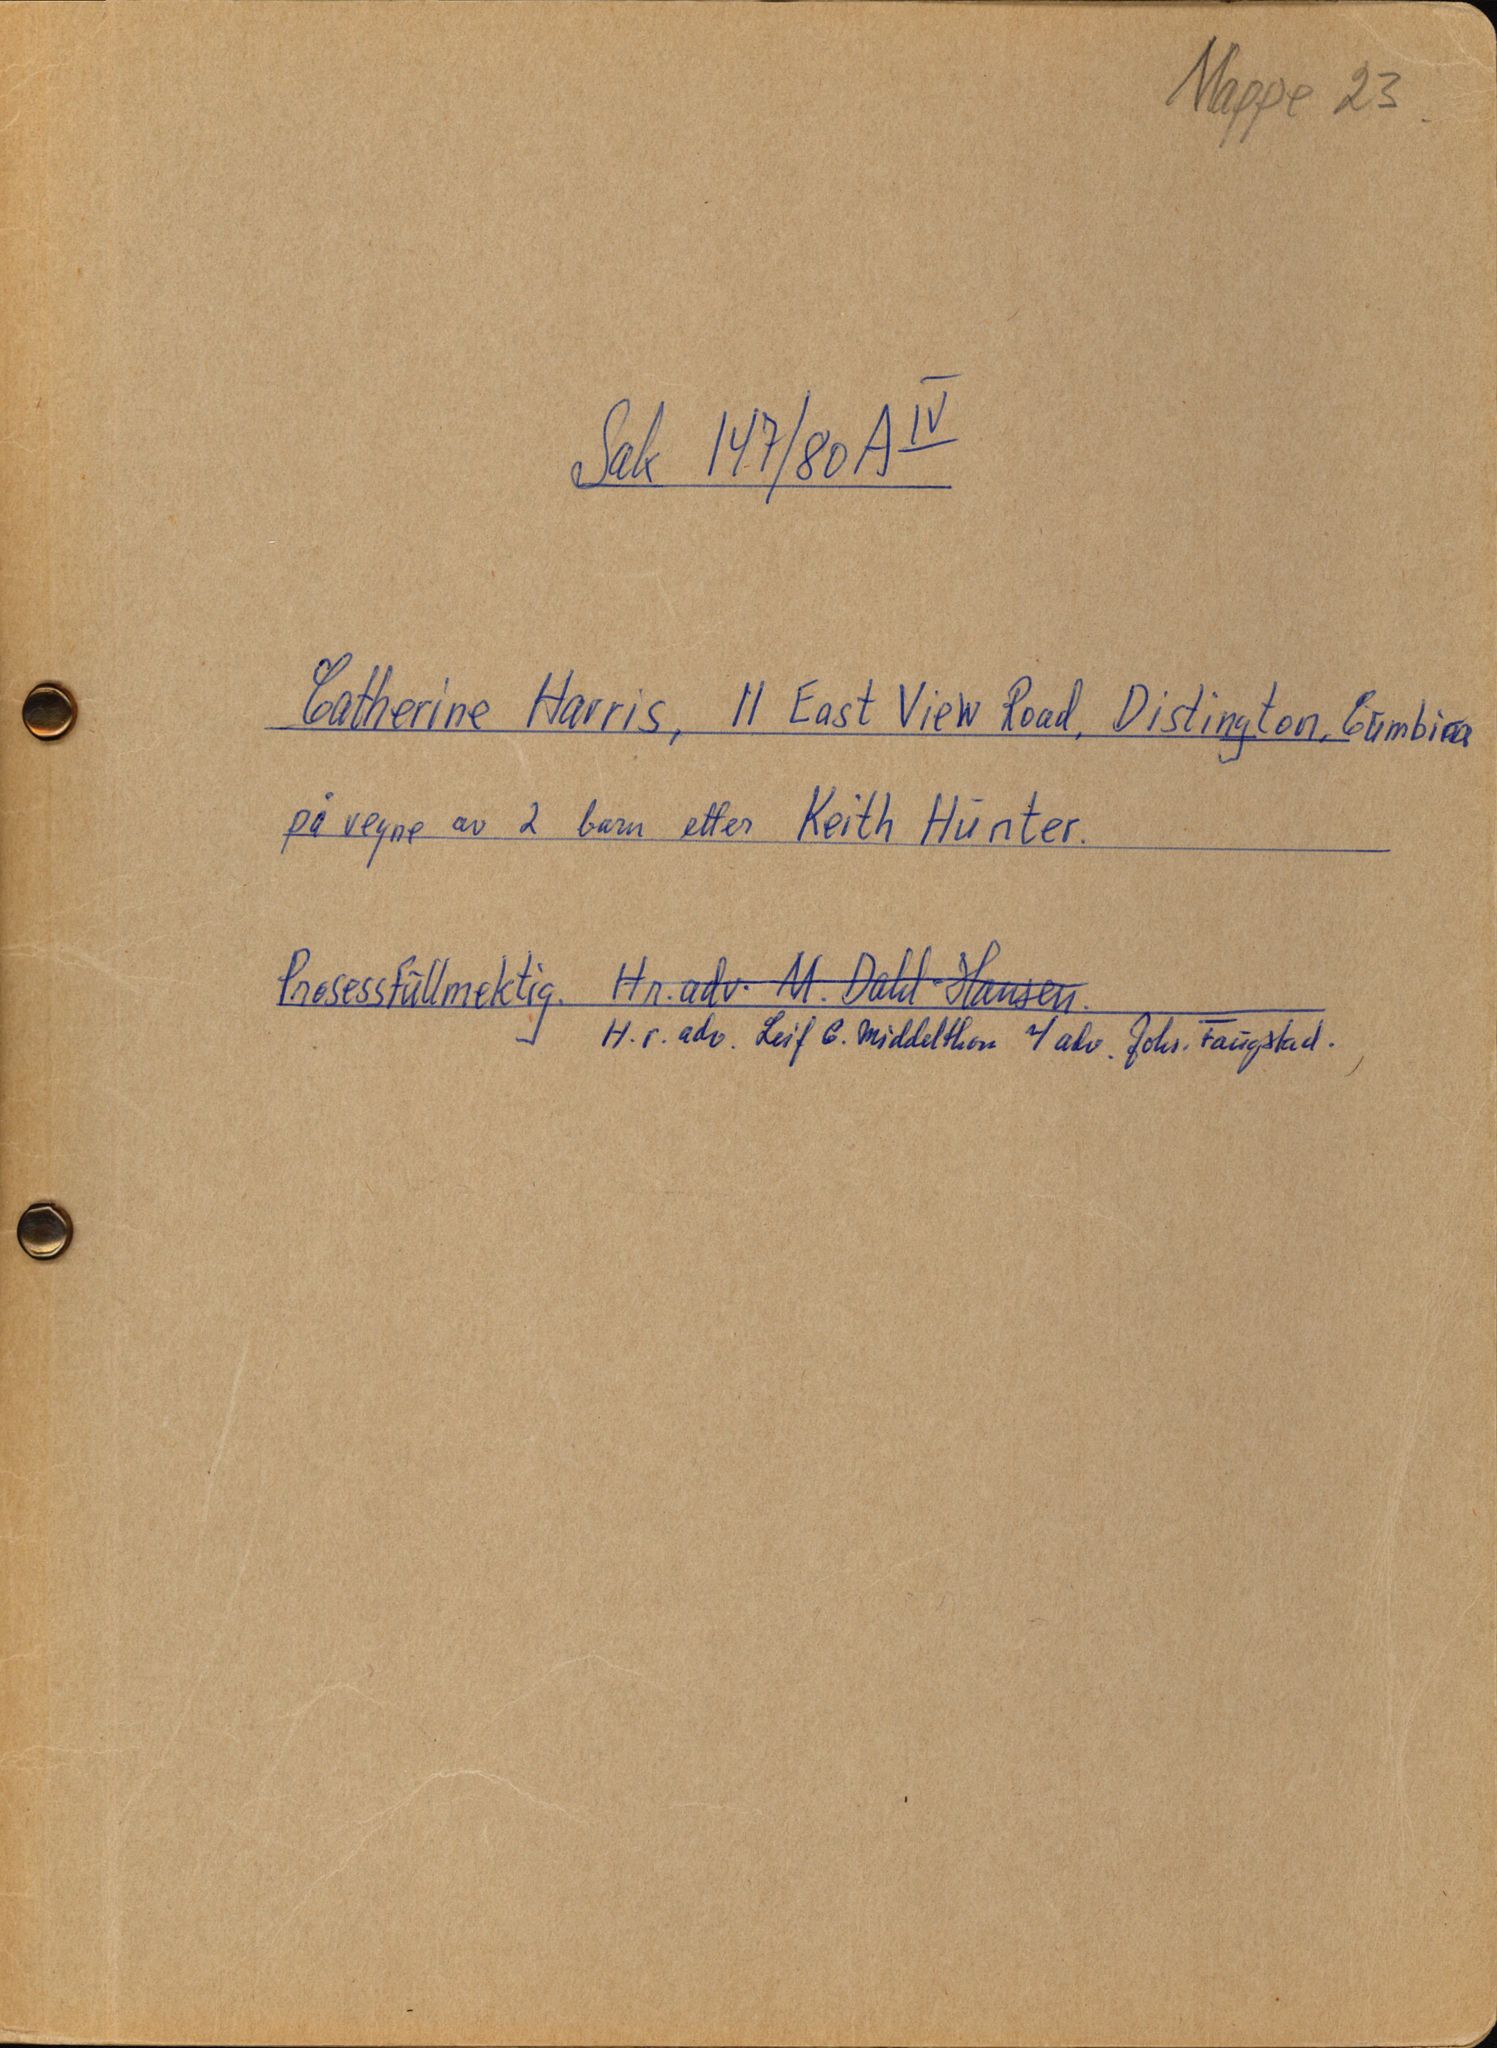 Mappe 23.
Sak 147/80 A IV
Catherine Harris, 11 East View Road, Distington, Cumbria
på vegne av 2 barn etter Keith Hunter.
Prosessfullmektig. H.r.adv. M. Dahl-Hansen.
H.r.adv. Leif C. Middelthon v/ adv. Johs. Faugstad.